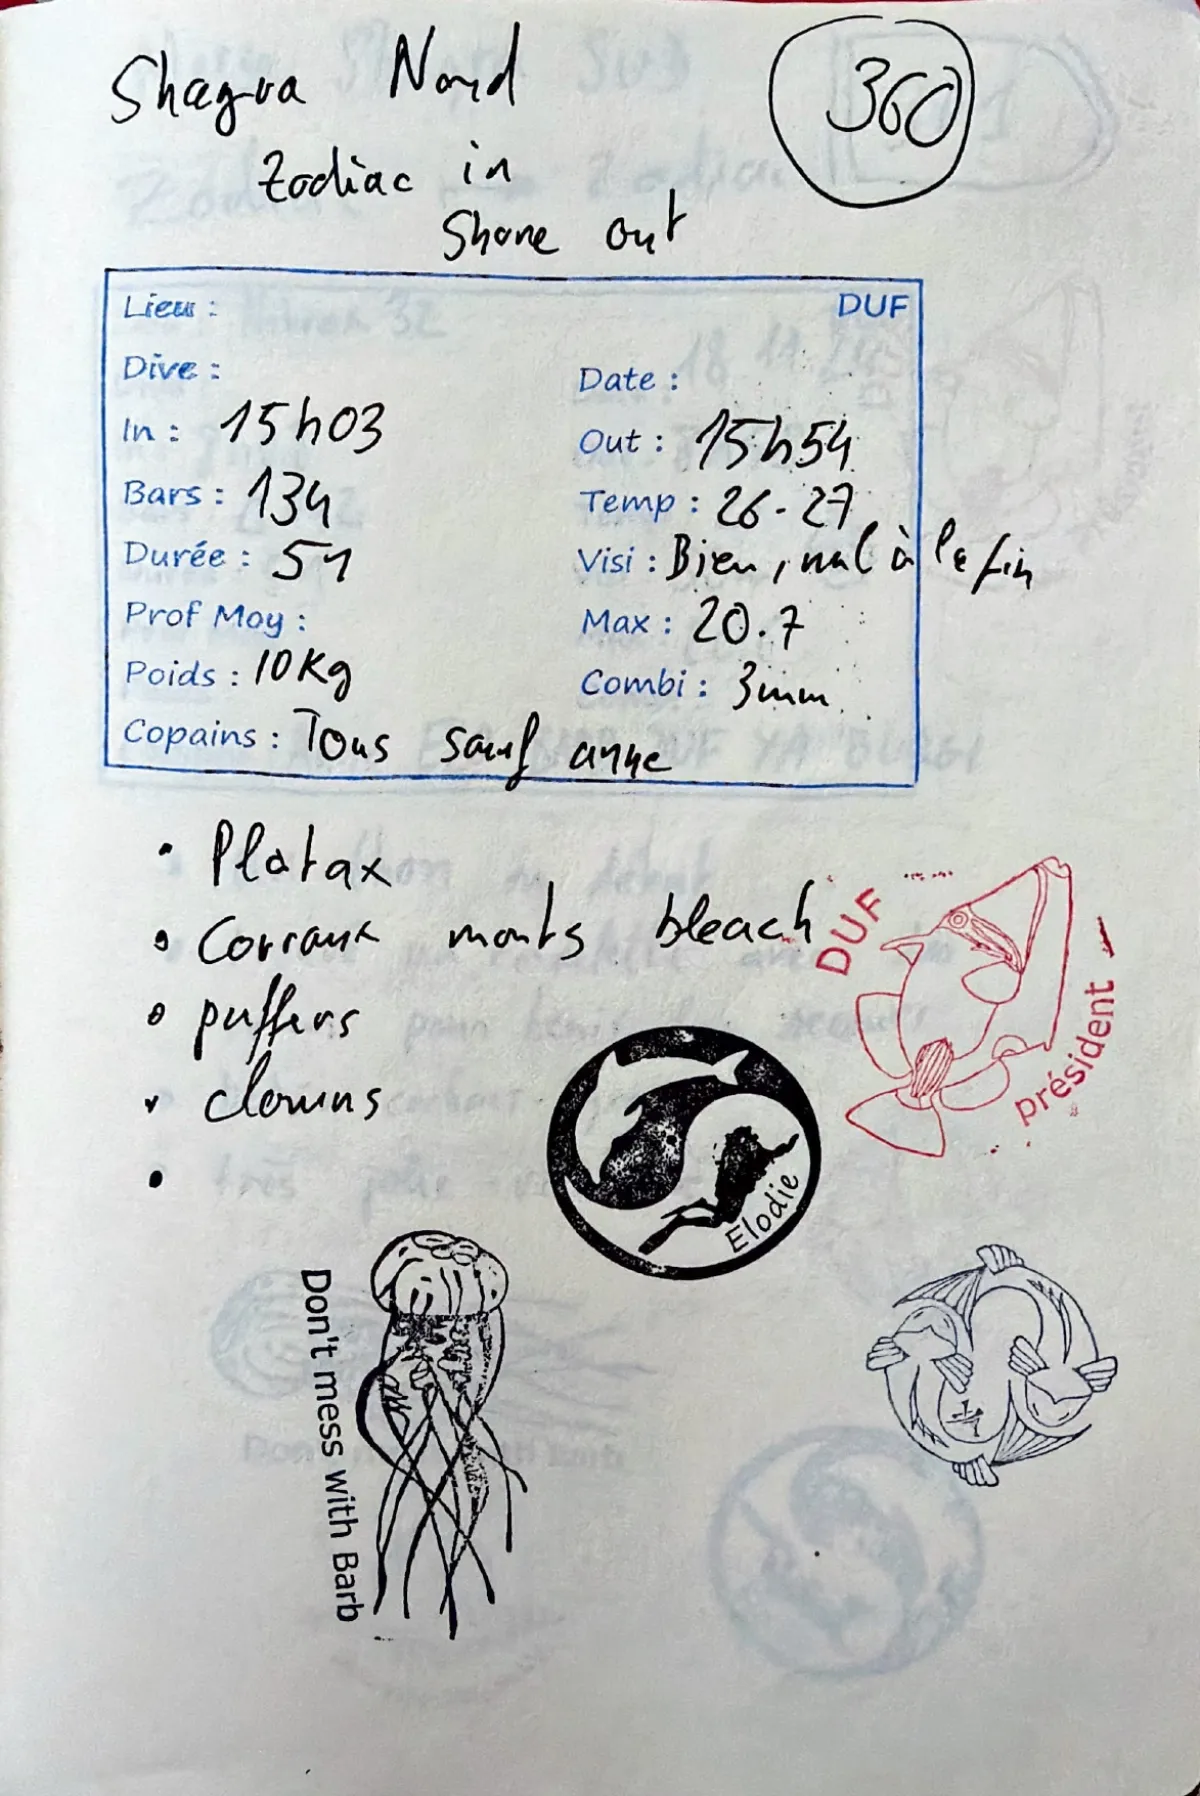 Shagra Nord
360
Zodiac in
Shore out
Lieu : DUF
Dive : Date :
In : 15h03 Out : 15h54
Bars : 134 Temp : 26-27
Durée : 51 Visi : Bien, mal à la fin
Prof Moy : Max : 20.7
Poids : 10Kg Combi : 3mm
Copains : Tous sauf anne
• Platax
• Corraux morts bleach
• puffers
• clowns
•
DUF
président
Elodie
Don't mess with Barb